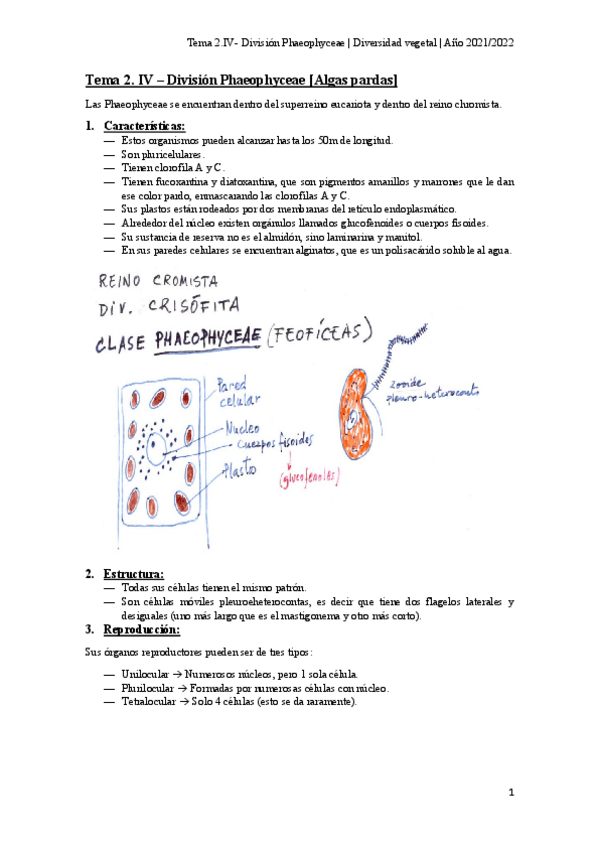 Tema 2.IV- División Phaeophyceae | Diversidad vegetal | Año 2021/2022
Tema 2. IV – División Phaeophyceae [Algas pardas]
Las Phaeophyceae se encuentran dentro del superreino eucariota y dentro del reino chromista.
1. Características:
— Estos organismos pueden alcanzar hasta los 50m de longitud.
— Son pluricelulares.
— Tienen clorofila A y C.
— Tienen fucoxantina y diatoxantina, que son pigmentos amarillos y marrones que le dan
ese color pardo, enmascarando las clorofilas A y C.
— Sus plastos están rodeados por dos membranas del retículo endoplasmático.
— Alrededor del núcleo existen orgánulos llamados glucofenoides o cuerpos fisoides.
— Su sustancia de reserva no es el almidón, sino laminarina y manitol.
— En sus paredes celulares se encuentran alginatos, que es un polisacárido soluble al agua.
REINO CROMISTA
DIV. CRISÓFITA
CLASE PHAEOPHYCEAE (FEOFÍCEAS)
Pared
celular
Nucleo
Cuerpos fisoides
(glucofenoles)
Plasto
Zooide
pleuro-heteroconto
2. Estructura:
— Todas sus células tienen el mismo patrón.
— Son células móviles pleuroeheterocontas, es decir que tiene dos flagelos laterales y
desiguales (uno más largo que es el mastigonema y otro más corto).
3. Reproducción:
Sus órganos reproductores pueden ser de tres tipos:
— Unilocular → Numerosos núcleos, pero 1 sola célula.
— Plurilocular → Formadas por numerosas células con núcleo.
— Tetralocular → Solo 4 células (esto se da raramente).
1